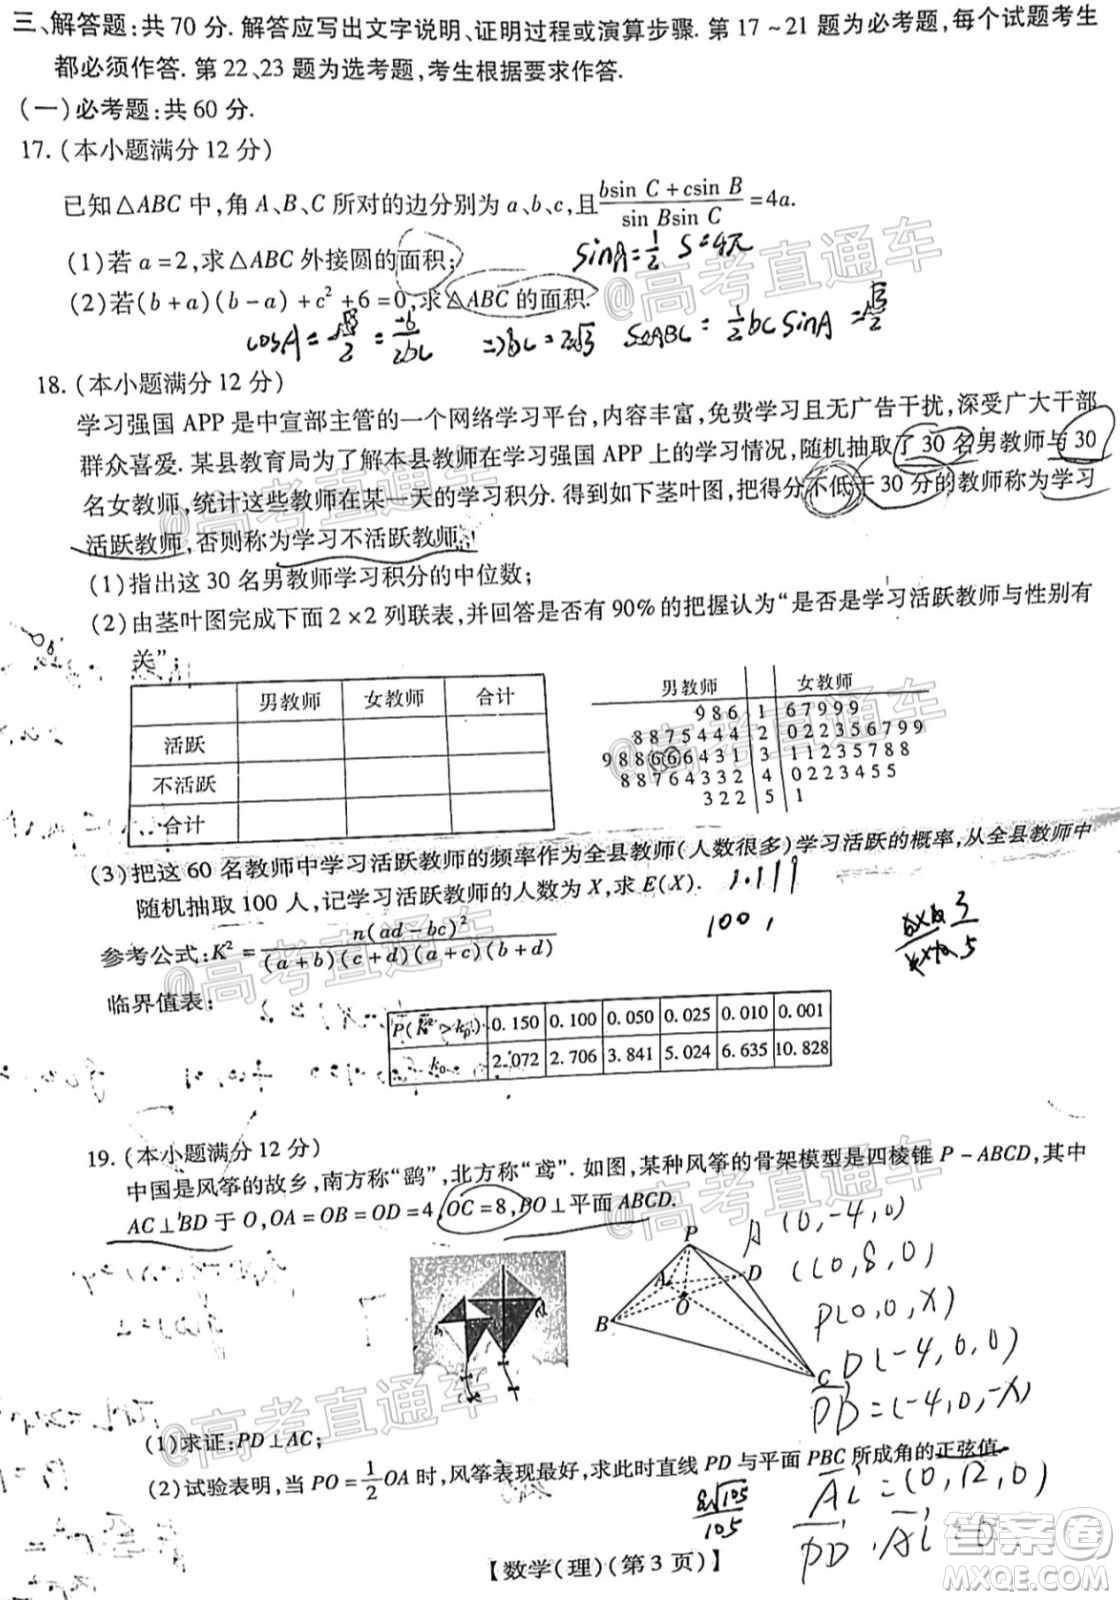 三、解答题:共 70 分. 解答应写出文字说明、证明过程或演算步骤. 第 17～21 题为必考题,每个试题考生
都必须作答. 第 22、23 题为选考题,考生根据要求作答.
(一)必考题:共 60 分.
17. (本小题满分 12 分)
已知△ABC 中,角 A、B、C 所对的边分别为 a、b、c,且 (bsin C+csin B)/(sin Bsin C)=4a.
(1)若 a=2,求△ABC 外接圆的面积;
sinA=1/2 S=4π
(2)若(b+a)(b-a)+c²+6=0,求△ABC 的面积.
cosA=√3/2=-6/2bc ⇒bc=2√3 S△ABC=1/2bcsinA=√3/2
18. (本小题满分 12 分)
学习强国 APP 是中宣部主管的一个网络学习平台,内容丰富,免费学习且无广告干扰,深受广大干部
群众喜爱. 某县教育局为了解本县教师在学习强国 APP 上的学习情况,随机抽取了 30 名男教师与 30
名女教师,统计这些教师在某一天的学习积分. 得到如下茎叶图,把得分不低于 30 分的教师称为学习
活跃教师,否则称为学习不活跃教师.
(1)指出这 30 名男教师学习积分的中位数;
(2)由茎叶图完成下面 2×2 列联表,并回答是否有 90%的把握认为“是否是学习活跃教师与性别有
关”;
男教师 女教师 合计
活跃
不活跃
合计
男教师 女教师
9 8 6 1 6 7 9 9 9
8 8 7 5 4 4 4 2 0 2 2 3 5 6 7 9 9
9 8 8 6 6 6 4 3 1 3 1 1 2 3 5 7 8 8
8 8 7 6 4 3 3 2 4 0 2 2 3 4 5 5
3 2 2 5 1
(3)把这 60 名教师中学习活跃教师的频率作为全县教师(人数很多)学习活跃的概率,从全县教师中
随机抽取 100 人,记学习活跃教师的人数为 X,求 E(X).
1.111
100
参考公式:K²=n(ad-bc)²/((a+b)(c+d)(a+c)(b+d))
临界值表:
P(K²>k₀) 0.150 0.100 0.050 0.025 0.010 0.001
k₀ 2.072 2.706 3.841 5.024 6.635 10.828
19. (本小题满分 12 分)
中国是风筝的故乡,南方称“鹞”,北方称“鸢”. 如图,某种风筝的骨架模型是四棱锥 P-ABCD,其中
AC⊥BD 于 O,OA=OB=OD=4,OC=8,PO⊥平面 ABCD.
P
A
D
B
O
C
A(0,-4,0)
C(0,8,0)
P(0,0,X)
D(-4,0,0)
PD=(-4,0,-X)
(1)求证:PD⊥AC;
(2)试验表明,当 PO=1/2OA 时,风筝表现最好,求此时直线 PD 与平面 PBC 所成角的正弦值.
8√105/105
AC=(0,12,0)
PD·AC=0
【数学(理)(第 3 页)】
@高考直通车
@高考直通车
@高考直通车
@高考直通车
@高考直通车
@高考直通车
@高考直通车
答案圈
MXQE.COM